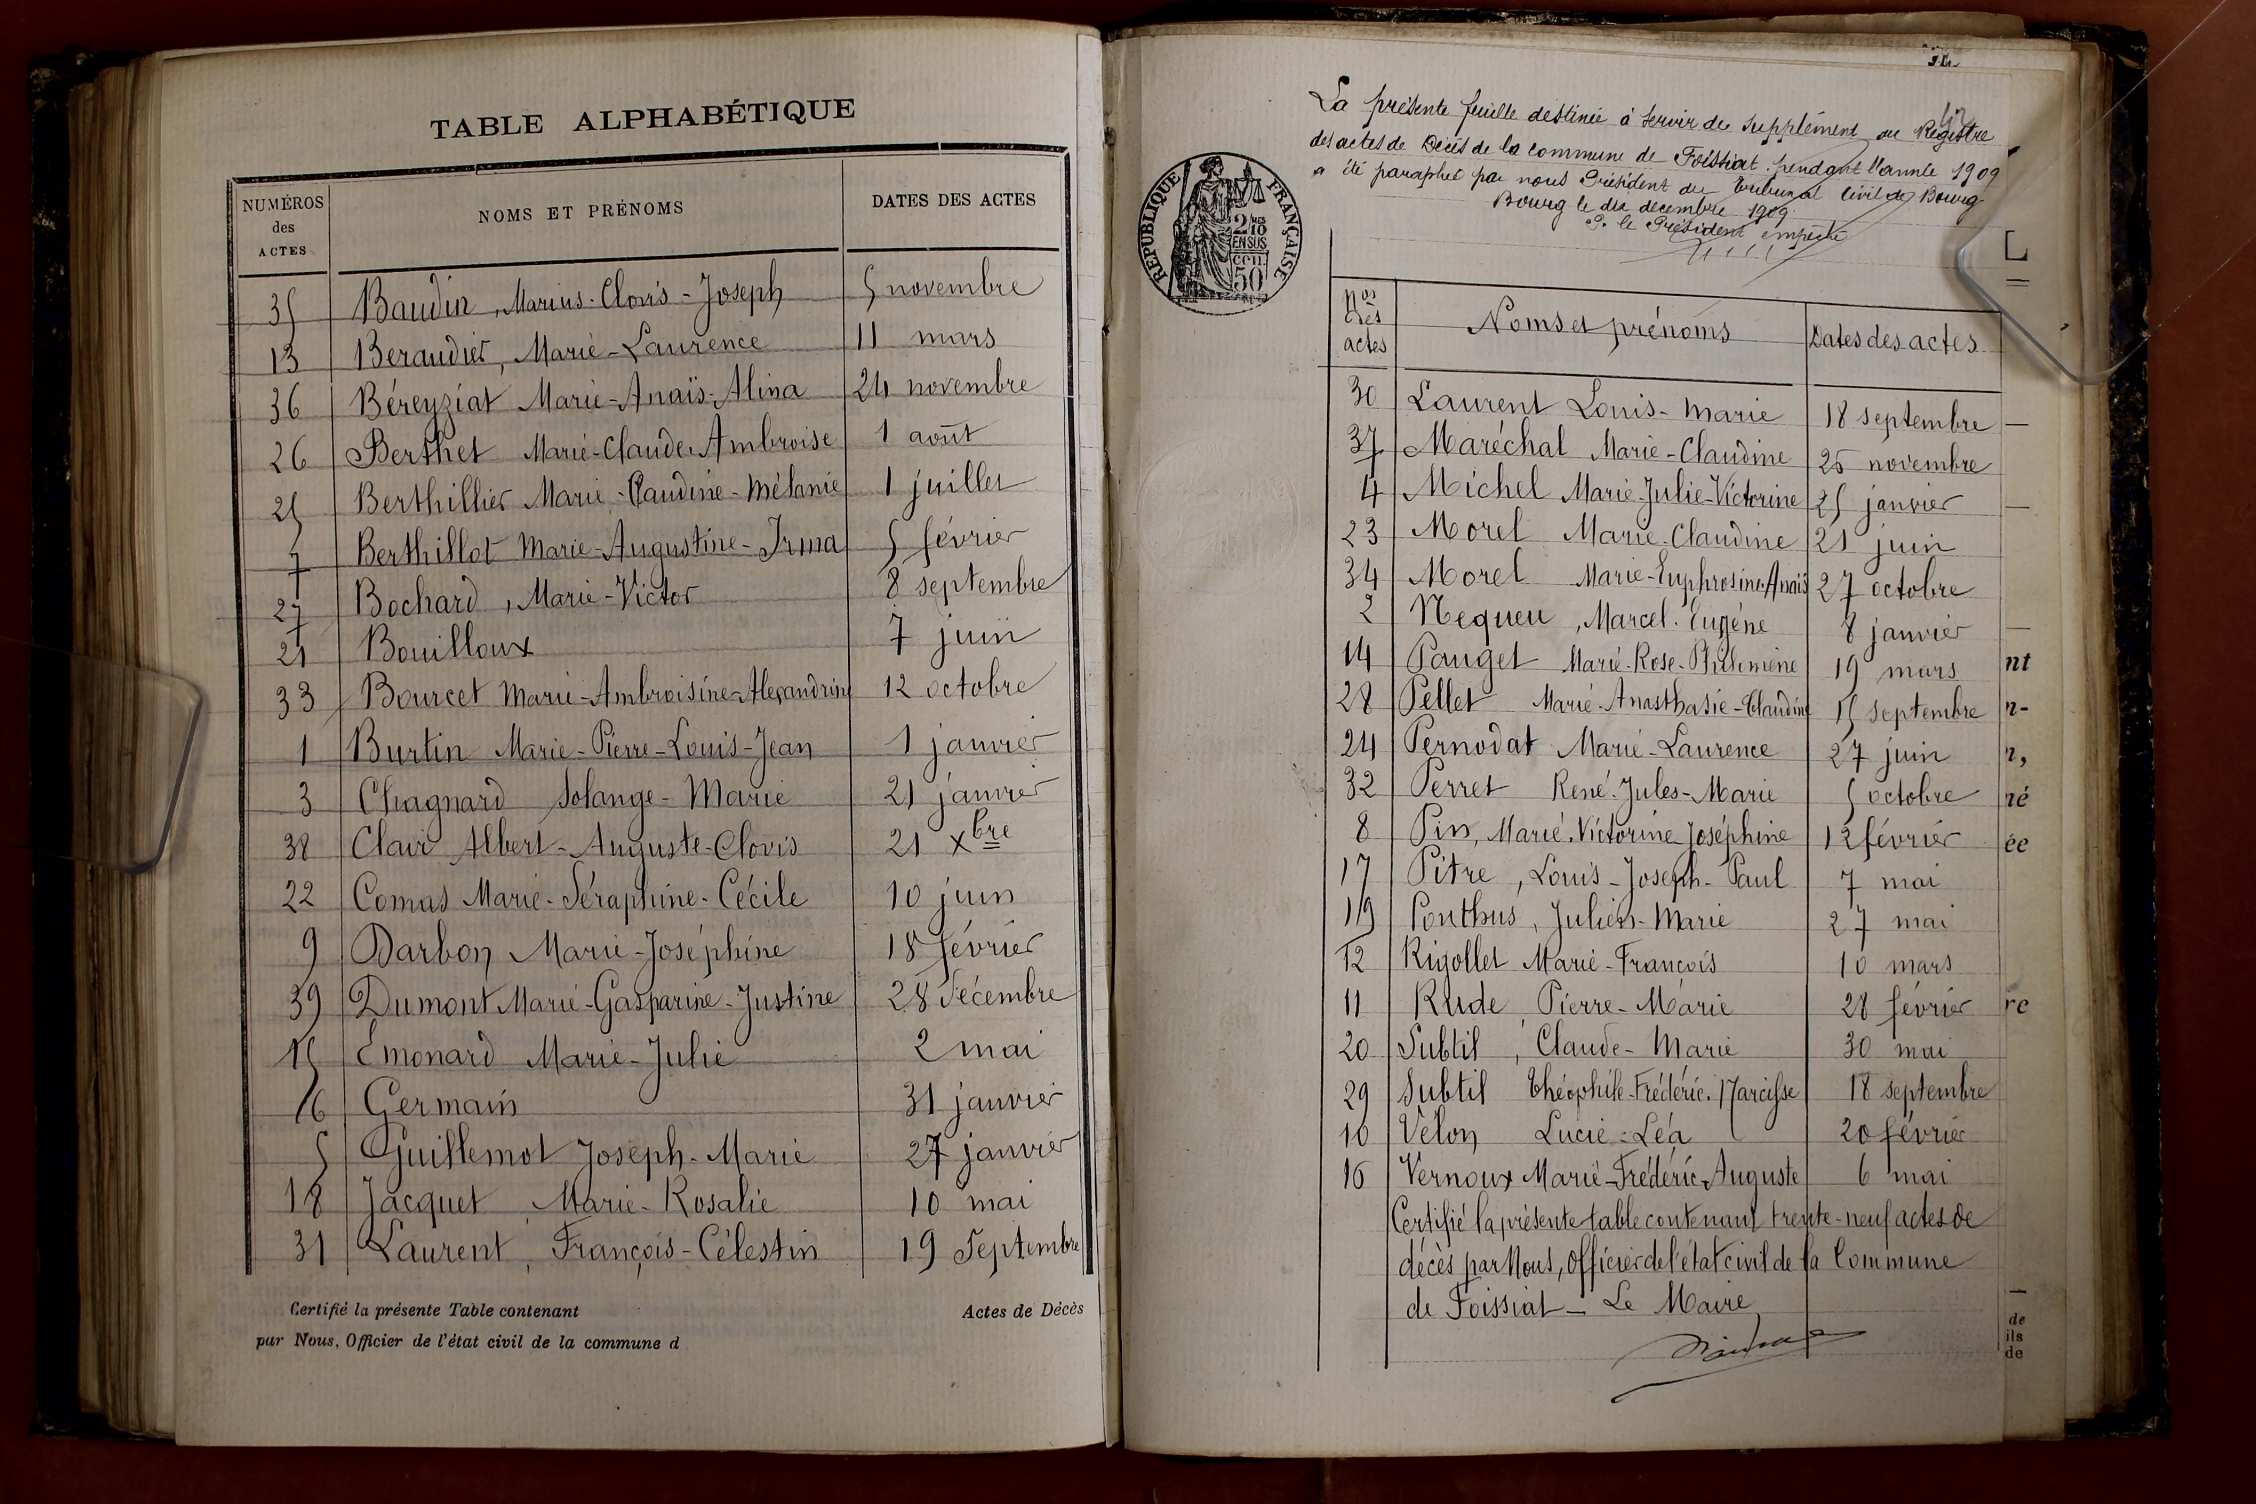 TABLE ALPHABÉTIQUE
NUMÉROS des ACTES NOMS ET PRÉNOMS DATES DES ACTES
35 Baudin, Marius-Clovis-Joseph 5 novembre
13 Beraudier, Marie-Laurence 11 mars
36 Béreyziat Marie-Anaïs-Alina 24 novembre
26 Berthet Marie-Claude-Ambroise 1 août
25 Berthillier Marie-Claudine-Mélanie 1 juillet
7 Berthillot Marie-Augustine-Irma 5 février
27 Bochard, Marie-Victor 8 septembre
21 Bouilloux 7 juin
33 Bourcet Marie-Ambroisine-Alexandrine 12 octobre
1 Burtin Marie-Pierre-Louis-Jean 1 janvier
3 Chagnard Solange-Marie 21 janvier
38 Clair Albert-Auguste-Clovis 21 Xbre
22 Comas Marie-Séraphine-Cécile 10 juin
9 Darbon Marie-Joséphine 18 février
39 Dumont Marie-Gasparine-Justine 28 décembre
15 Emonard Marie-Julie 2 mai
6 Germain 31 janvier
5 Guillemot Joseph-Marie 27 janvier
18 Jacquet Marie-Rosalie 10 mai
31 Laurent, François-Célestin 19 Septembre
Certifié la présente Table contenant Actes de Décès
par Nous, Officier de l'état civil de la commune d
La présente feuille destinée à servir de supplément au Registre
des actes de Décès de la commune de Foissiat pendant l'année 1909
a été paraphée par nous Président du Tribunal Civil de Bourg
Bourg le dix decembre 1909
P. le Président empêché
RÉPUBLIQUE FRANÇAISE
2/10
EN SUS
50
Nos des actes Noms et prénoms Dates des actes
30 Laurent Louis-Marie 18 septembre
37 Maréchal Marie-Claudine 25 novembre
4 Michel Marie-Julie-Victorine 25 janvier
23 Morel Marie-Claudine 21 juin
34 Morel Marie-Euphrosine-Anaïs 27 octobre
2 Nequeu, Marcel-Eugène 8 janvier
14 Pauget Marie-Rose-Philomène 19 mars
28 Pellet Marie-Anasthasie-Claudine 15 septembre
24 Pernodat Marie-Laurence 27 juin
32 Perret René-Jules-Marie 5 octobre
8 Pin, Marie-Victorine-Joséphine 12 février
17 Pitre, Louis-Joseph-Paul 7 mai
19 Ponthus, Julien-Marie 27 mai
12 Rigollet Marie-François 10 mars
11 Rude, Pierre-Marie 28 février
20 Subtil, Claude-Marie 30 mai
29 Subtil Théophile-Frédéric-Narcisse 18 septembre
10 Vélon Lucie-Léa 20 février
16 Vernoux Marie-Frédéric-Auguste 6 mai
Certifié la présente table contenant trente-neuf actes de
décès par Nous, Officier de l'état civil de la Commune
de Foissiat - Le Maire
nt
n-
n,
né
ée
re
de
ils
de